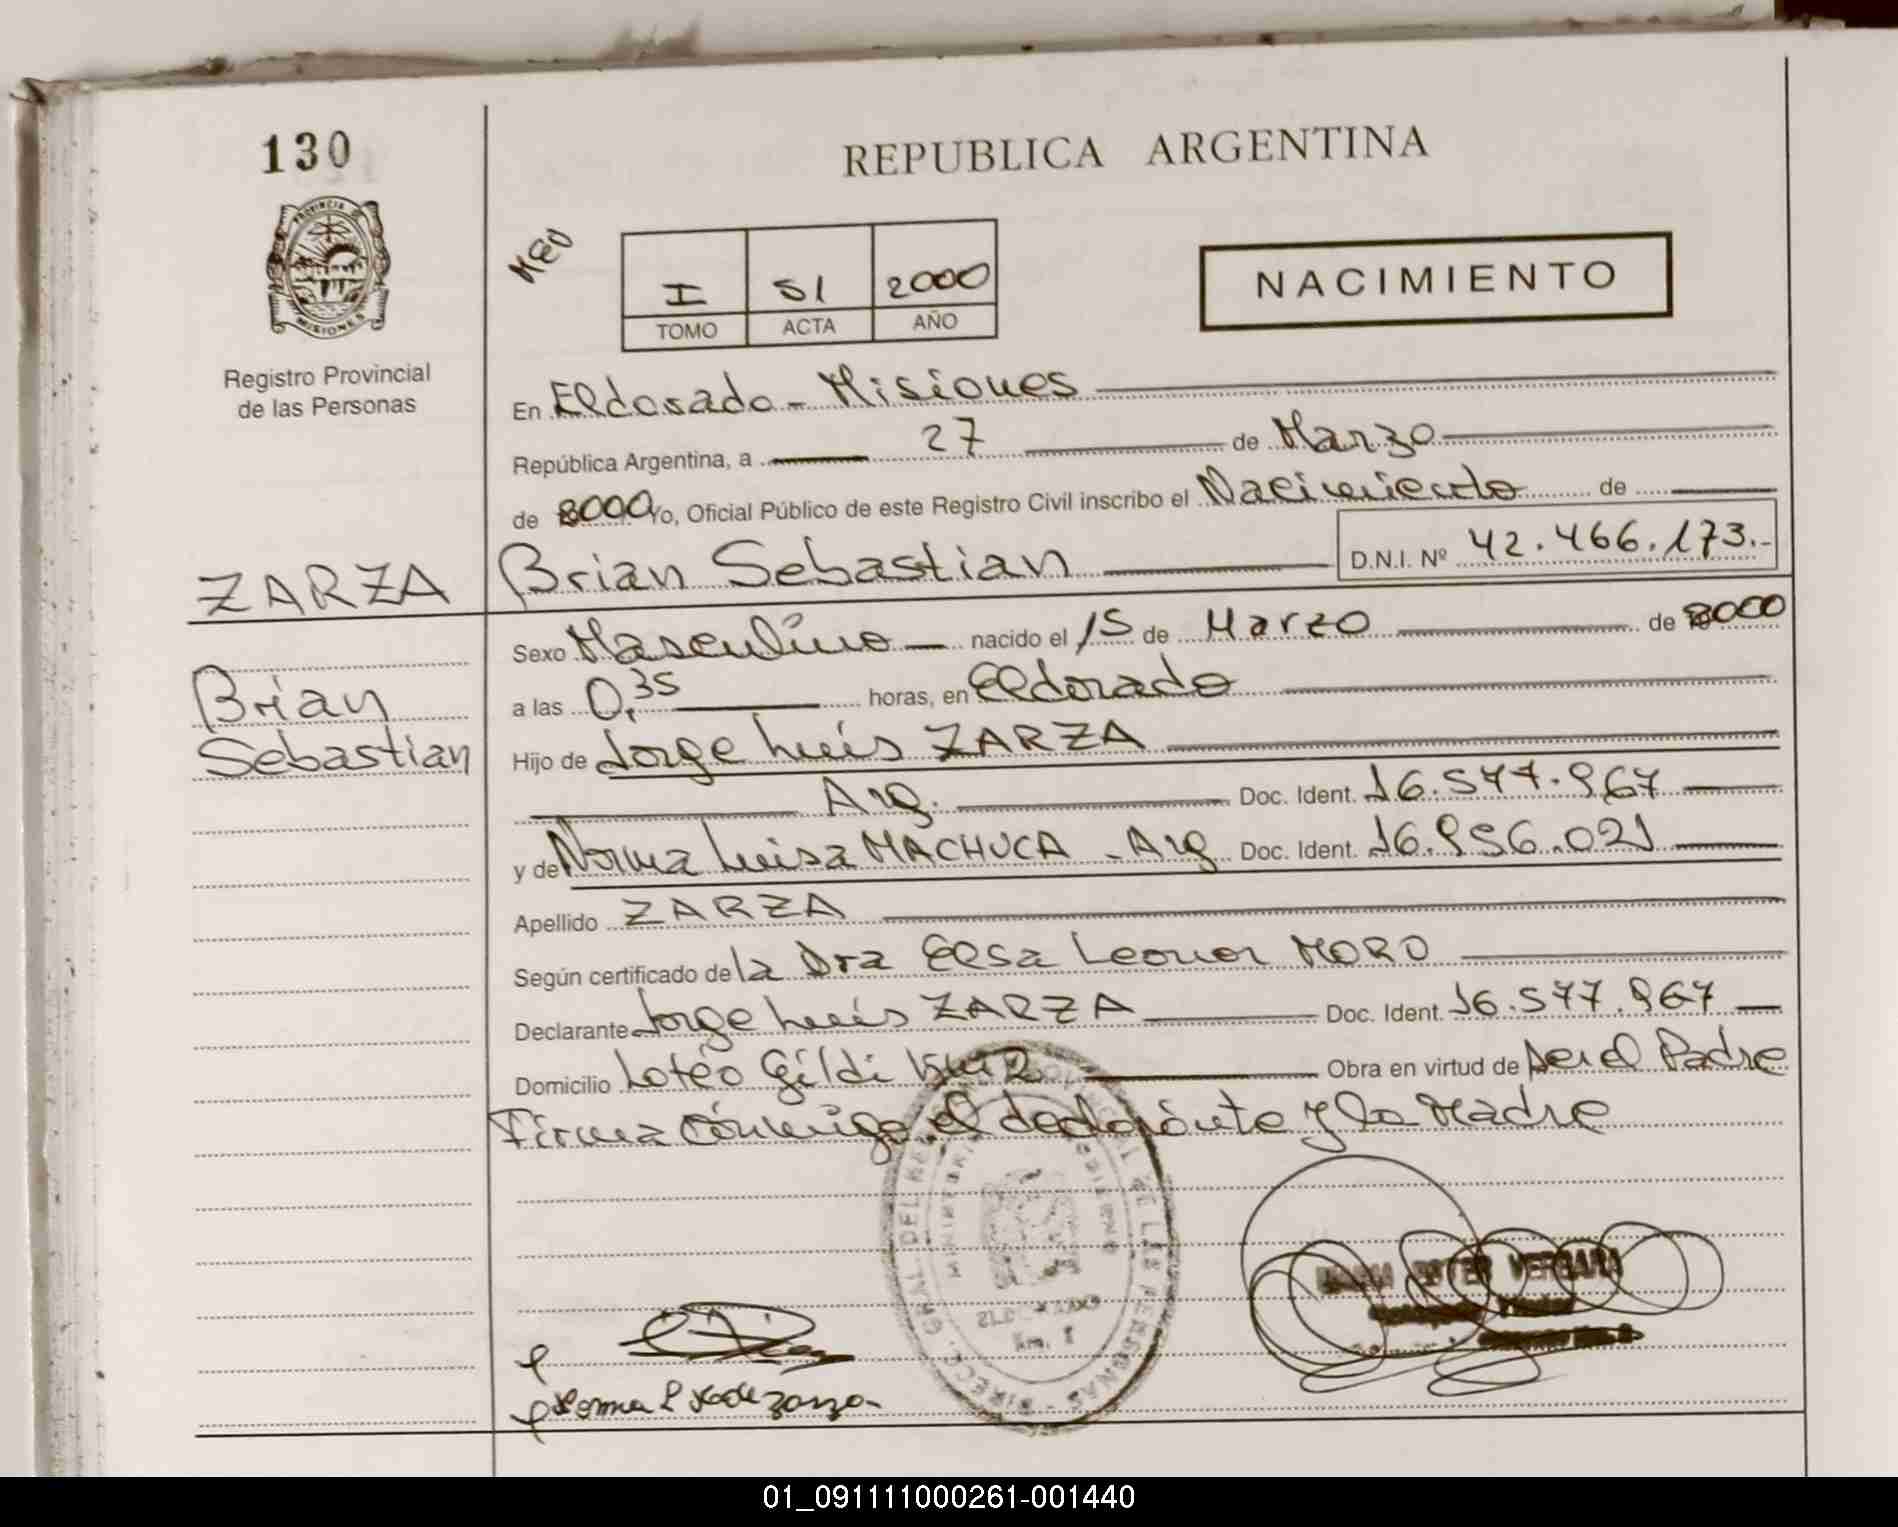 130
REPUBLICA ARGENTINA
PROVINCIA DE
MISIONES
Registro Provincial
de las Personas
I
51
2000
TOMO
ACTA
AÑO
NACIMIENTO
En Eldorado - Misiones
República Argentina, a 27 de Marzo
de 2000 Yo, Oficial Público de este Registro Civil inscribo el Nacimiento de
ZARZA
Brian Sebastian
D.N.I. Nº 42.466.173.-
Brian
Sebastian
Sexo Masculino nacido el 15 de Marzo de 2000
a las 0,35 horas, en Eldorado
Hijo de Jorge Luis ZARZA
Arg. Doc. Ident. 16.577.967
y de Norma Luisa MACHUCA - Arg Doc. Ident. 16.956.021
Apellido ZARZA
Según certificado de la Dra Elsa Leonor MORO
Declarante Jorge Luis ZARZA Doc. Ident. 16.577.967
Domicilio Loteo Gildi Obra en virtud de ser el Padre
Firma conmigo el declarante y la Madre
ESTER VERGARA
01_091111000261-001440